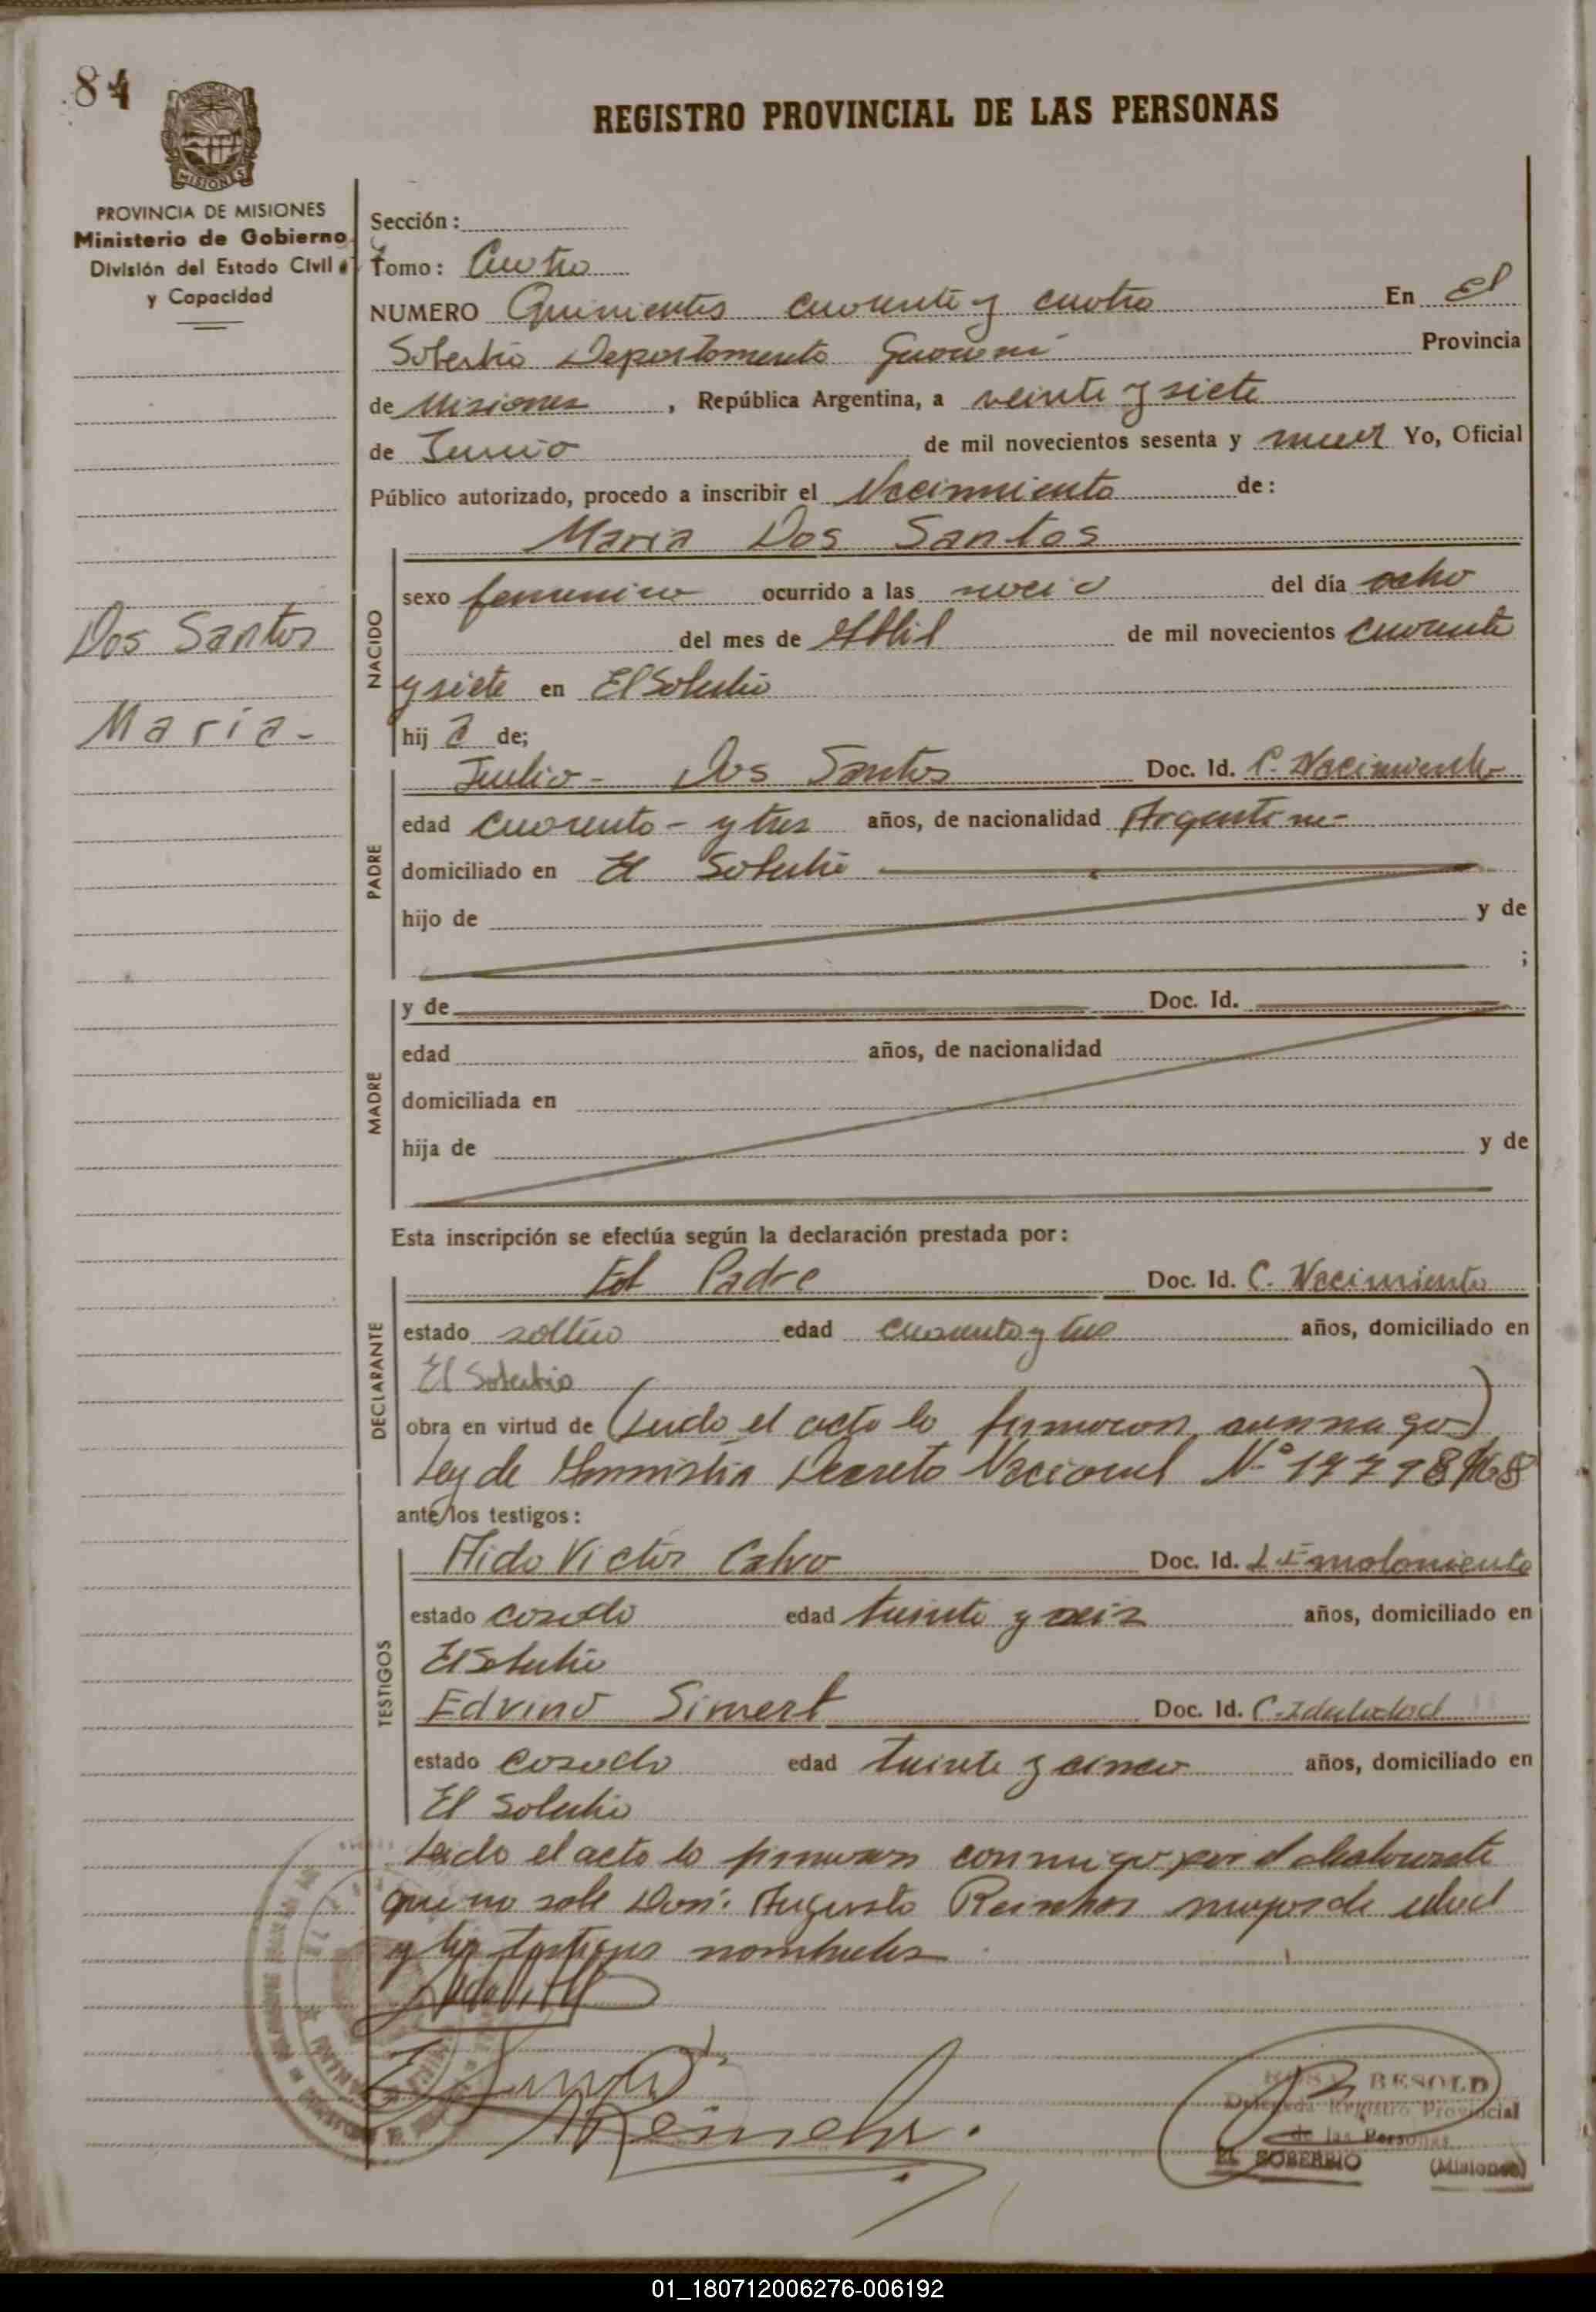 84
REGISTRO PROVINCIAL DE LAS PERSONAS
MISIONES
PROVINCIA DE MISIONES
Ministerio de Gobierno
División del Estado Civil
y Capacidad
Sección:
Tomo: Cuatro
NUMERO Quinientos cuarenta y cuatro En El
Soberbio Departamento Guarani Provincia
de Misiones, República Argentina, a veinte y siete
de Junio de mil novecientos sesenta y nueve Yo, Oficial
Público autorizado, procedo a inscribir el Nacimiento de:
Maria Dos Santos
NACIDO
sexo femenino ocurrido a las del día ocho
del mes de Abril de mil novecientos cuarenta
y siete en El Soberbio
Dos Santos
Maria-
hij a de;
PADRE
Julio - Dos Santos Doc. Id. C. Nacimiento
edad cuarenta - y tres años, de nacionalidad Argentina-
domiciliado en El Soberbio
hijo de y de
;
MADRE
y de Doc. Id.
edad años, de nacionalidad
domiciliada en
hija de y de
Esta inscripción se efectúa según la declaración prestada por:
DECLARANTE
El Padre Doc. Id. C. Nacimiento
estado soltero edad cuarenta y tres años, domiciliado en
El Soberbio
obra en virtud de (Leido el acto lo firmaron conmigo)
Ley de Amnistia Decreto Nacional N°
ante los testigos:
TESTIGOS
Aldo Victor Calvo Doc. Id. L. Enrolamiento
estado casado edad treinta y seis años, domiciliado en
El Soberbio
Edvino Simert Doc. Id. C. Identidad
estado casado edad treinta y cinco años, domiciliado en
El Soberbio
Leido el acto lo firmaron conmigo por el declarante
que no sabe Don: Augusto mayor de edad
y los testigos nombrados
BESOLD
Delegada Registro Provincial
de las Personas
EL SOBERBIO (Misiones)
01_180712006276-006192